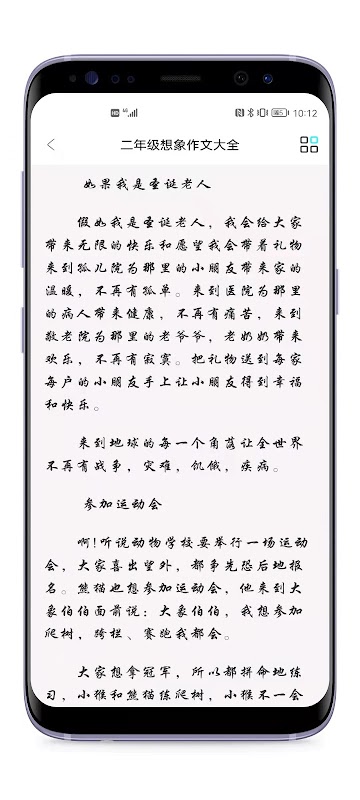 10:12
二年级想象作文大全
如果我是圣诞老人
假如我是圣诞老人，我会给大家
带来无限的快乐和愿望我会带着礼物
来到孤儿院为那里的小朋友带来家的
温暖，不再有孤单。来到医院为那里
的病人带来健康，不再有痛苦，来到
敬老院为那里的老爷爷，老奶奶带来
欢乐，不再有寂寞。把礼物送到每家
每户的小朋友手上让小朋友得到幸福
和快乐。
来到地球的每一个角落让全世界
不再有战争，灾难，饥饿，疾病。
参加运动会
啊!听说动物学校要举行一场运动
会，大家喜出望外，都争先恐后地报
名。熊猫也想参加运动会，他来到大
象伯伯面前说：大象伯伯，我想参加
爬树，跨栏、赛跑我都会。
大家想拿冠军，所以都拼命地练
习，小猴和熊猫练爬树，小猴不一会